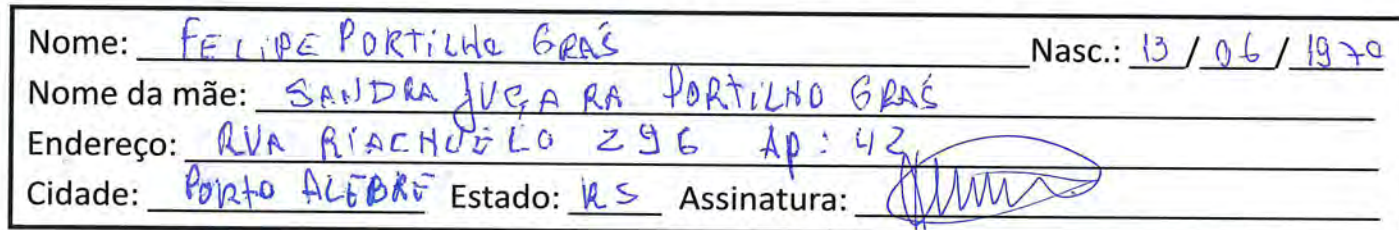 Nome: FELIPE PORTILHO GRAS Nasc.: 13 / 06 / 1970
Nome da mãe: SANDRA JUÇARA PORTILHO GRAS
Endereço: RUA RIACHUELO 296 Ap: 42
Cidade: PORTO ALEGRE Estado: RS Assinatura: